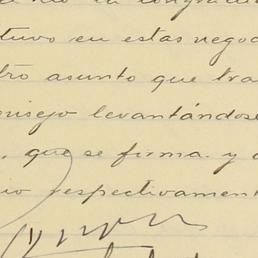 tuvo en estas negoc
tro asunto que tra
onsejo levantándose
, que se firma y a
rio respectivament